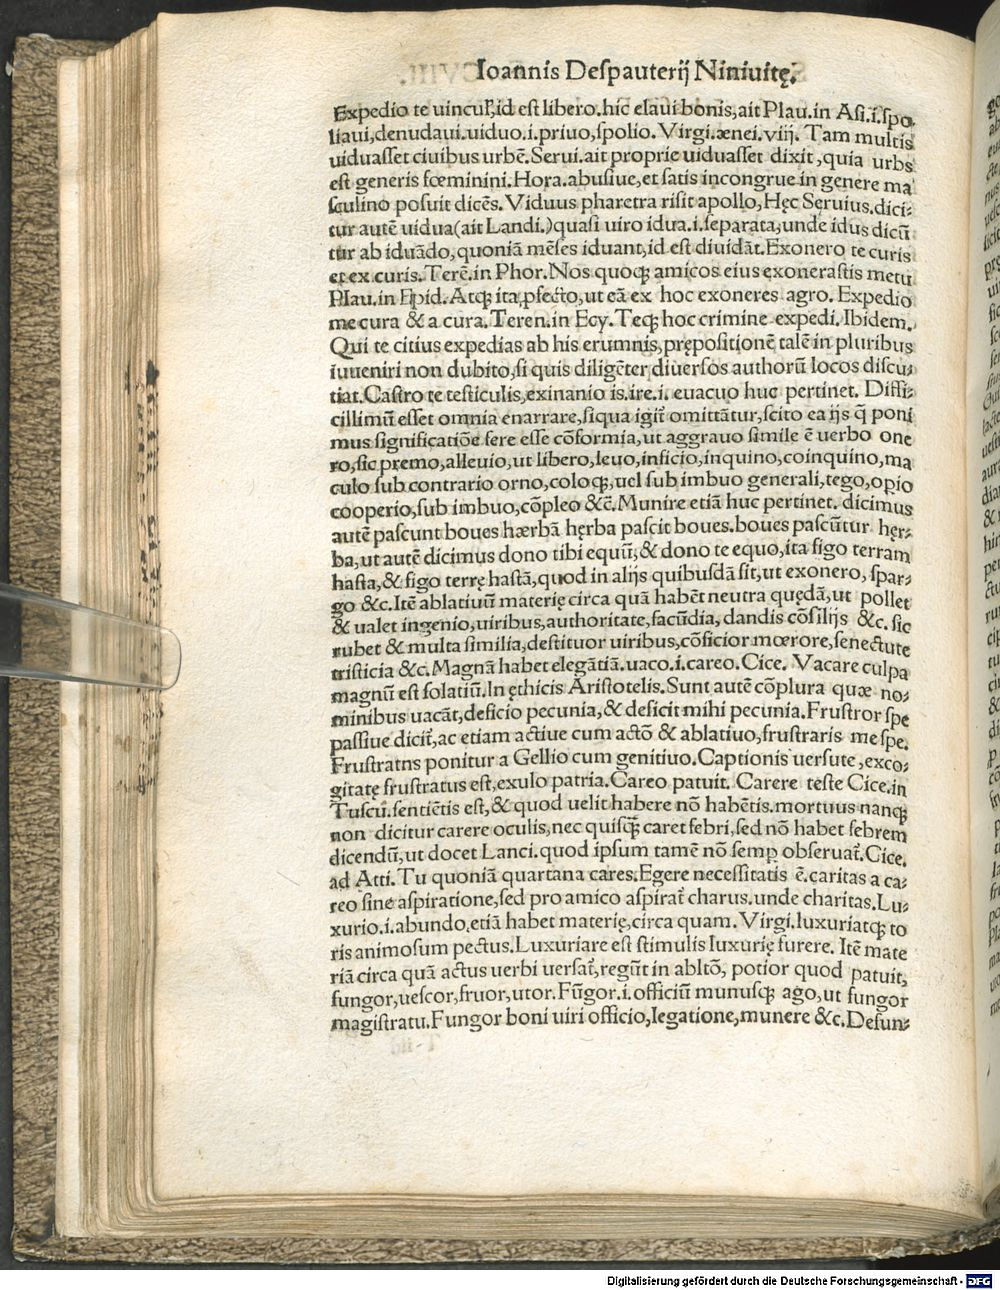 Ioannis Despauterij Niniuitę.
Expedio te uincuł,id est libero.hic elaui bonis,ait Plau.in Asi.i.spo
liaui,denudaui.uiduo.i.priuo,spolio.Virgi.ænei.viij. Tam multis
uiduasset ciuibus urbē.Serui.ait proprie uiduasset dixit,quia urbs
est generis fœminini.Hora.abusiue,et satis incongrue in genere ma
sculino posuit dicēs.Viduus pharetra risit apollo,Hęc Sęruius.dici⸗
tur autē uidua(ait Landi.)quasi uiro idua.i.separata,unde idus dicū
tur ab iduādo,quoniā mēses iduant,id est diuidāt.Exonero te curis
et ex curis.Terē.in Phor.Nos quoqȝ amicos eius exonerastis metu
Plau.in Epid.Atqȝ ita pfecto,ut eā ex hoc exoneres agro. Expedio
me cura & a cura.Teren.in Ecy.Teqȝ hoc crimine expedi.Ibidem.
Qui te citius expedias ab his erumnis,prępositionē talē in pluribus
iuueniri non dubito,si quis diligēter diuersos authorū locos discu⸗
tiat.Castro te testiculis,exinanio is.ire.i.euacuo huc pertinet. Diffi⸗
cillimū esset omnia enarrare,siqua igit̄ omittātur,scito ea ijs q̄ poni
mus significatiōe fere esse cōformia,ut aggrauo simile ē uerbo one
ro,sic premo,alleuio,ut libero,leuo,inficio,inquino,coinquino,ma
culo sub contrario orno,coloqȝ,uel sub imbuo generali,tego,opio
cooperio,sub imbuo,cōpleo &c̄.Munire etiā huc pertinet. dicimus
autē pascunt boues hærbā hęrba pascit boues.boues pascūtur hęr⸗
ba,ut autē dicimus dono tibi equū,& dono te equo,ita figo terram
hasta,& figo terrę hastā,quod in alijs quibusdā fit,ut exonero,spar⸗
go &c.Itē ablatiuū materię circa quā habēt neutra quędā,ut pollet
& ualet ingenio,uiribus,authoritate,facūdia,dandis cōsilijs &c.sic
rubet & multa similia,destituor uiribus,cōficior mœrore,senectute
tristicia &c.Magnā habet elegātiā.uaco.i.careo.Cice. Vacare culpa
magnū est solatiū.In ęthicis Aristotelis.Sunt autē cōplura quæ no⸗
minibus uacāt,deficio pecunia,& deficit mihi pecunia.Frustror spe
passiue dicit̄,ac etiam actiue cum actō & ablatiuo,frustraris me spe.
Frustratns ponitur a Gellio cum genitiuo.Captionis uersute,exco⸗
gitatę frustratus est,exulo patria.Careo patuit. Carere teste Cice.in
Tuscu.sentiētis est,& quod uelit habere nō habētis.mortuus nanqȝ
non dicitur carere oculis,nec quisqȝ̄ caret febri,sed nō habet febrem
dicendū,ut docet Lanci.quod ipsum tamē nō semp obseruat̄.Cice.
ad Atti.Tu quoniā quartana cares.Egere necessitatis ē.caritas a ca⸗
reo sine aspiratione,sed pro amico aspirat̄ charus.unde charitas.Lu⸗
xurio.i.abundo.etiā habet materię,circa quam.Virgi.luxuriatqȝ to
ris animosum pectus.Luxuriare est stimulis luxurię furere. Itē mate
riā circa quā actus uerbi uersat̄,regūt in abltō, potior quod patuit,
fungor,uescor,fruor,utor.Fūgor.i.officiū munusqȝ ago,ut fungor
magistratu.Fungor boni uiri officio,legatione,munere &c.Defun⸗
Digitalisierung gefördert durch die Deutsche Forschungsgemeinschaft - DFG